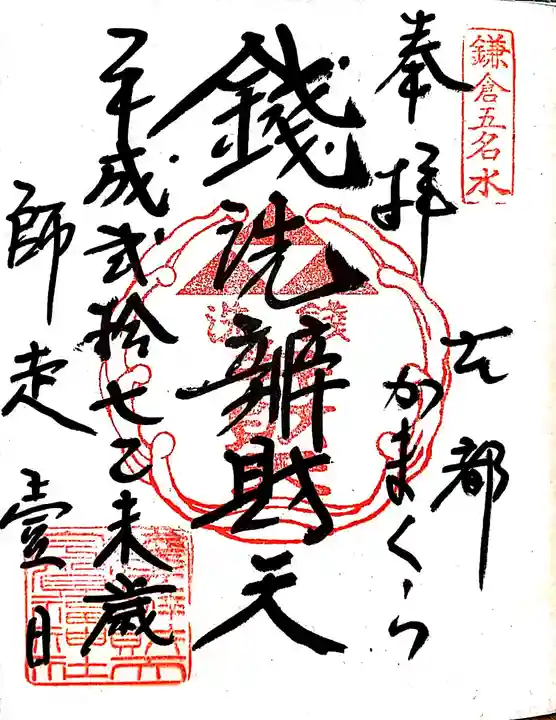 鎌倉五名水
奉拝
古都
かまくら
錢洗辨財天
平成弐拾七乙未歳
師走壹日